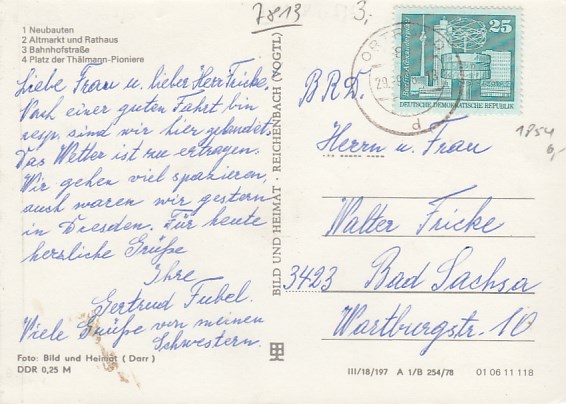 7813
3,
1 Neubauten
2 Altmarkt und Rathaus
3 Bahnhofstraße
4 Platz der Thälmann-Pioniere
Liebe Frau u. lieber Herr Fricke.
Nach einer guten Fahrt bin
resp. sind wir hier gelandet.
Das Wetter ist zu ertragen.
Wir gehen viel spazieren,
auch waren wir gestern
in Dresden. Für heute
herzliche Grüße
Ihre
Gertrud Fubel.
Viele Grüße von meinen
Schwestern.
Foto: Bild und Heimat (Darr)
DDR 0,25 M
BILD UND HEIMAT · REICHENBACH (VOGTL)
25
DEUTSCHE DEMOKRATISCHE REPUBLIK
1854
6,-
BRD.
Herrn u. Frau
Walter Fricke
3423 Bad Sachsa
Wartburgstr. 10
III/18/197 A 1/B 254/78 01 06 11 118